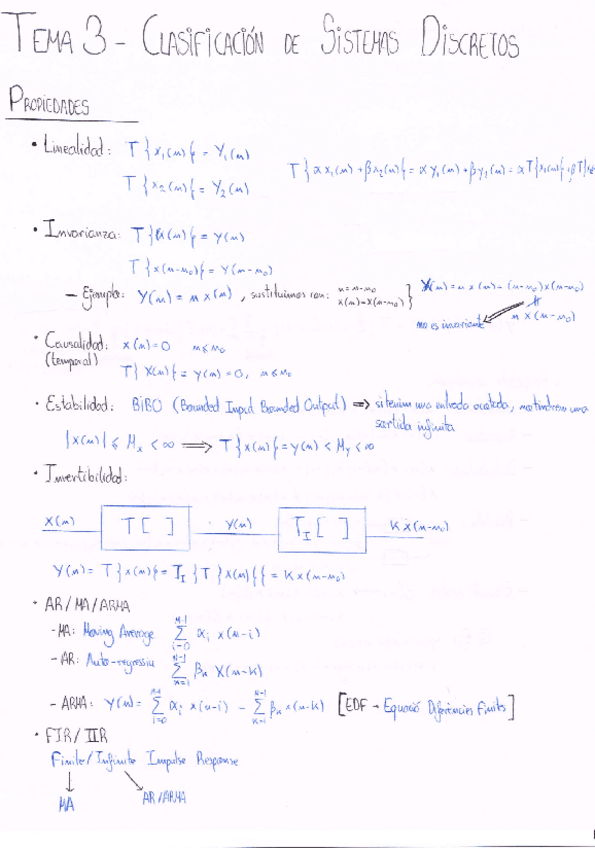 TEMA 3 - CLASIFICACIÓN DE SISTEMAS DISCRETOS
PROPIEDADES
• Linealidad: T{x₁(n)} = Y₁(n)
T{x₂(n)} = Y₂(n)
T{αx₁(n) + βx₂(n)} = αY₁(n) + βy₁(n) = αT{x₁(n)} + βT{x₂
• Invarianza: T{x(n)} = Y(n)
T{x(n-n₀)} = Y(n-n₀)
- Ejemplo: Y(n) = n x(n), sustituimos con: n = n-n₀
x(n) = x(n-n₀) } Y(n) = n x(n) = (n-n₀) x(n-n₀)
no es invariante n x(n-n₀)
• Causalidad: x(n) = 0 n ≤ n₀
(temporal) T{x(n)} = y(n) = 0, n ≤ n₀
• Estabilidad: BIBO (Bounded Input Bounded Output) ⟹ si tenim una entrada acotada, no tindrem una
sortida infinita
|x(n)| ≤ Mₓ < ∞ ⟹ T{x(n)} = y(n) < My < ∞
• Invertibilidad:
x(n) T[ ] Y(n) T_I[ ] K x(n-n₀)
Y(n) = T{x(n)} = T_I{T{x(n)}} = K x(n-n₀)
• AR/MA/ARMA
- MA: Moving Average Σ_{i=0}^{M-1} αᵢ x(n-i)
- AR: Auto-regressiu Σ_{k=1}^{N-1} βₖ x(n-k)
- ARMA: Y(n) = Σ_{i=0}^{M-1} αᵢ x(n-i) - Σ_{k=1}^{N-1} βₖ x(n-k) [EDF → Equació Diferències Finites]
• FIR/IIR
Finite/Infinite Impulse Response
MA AR/ARMA